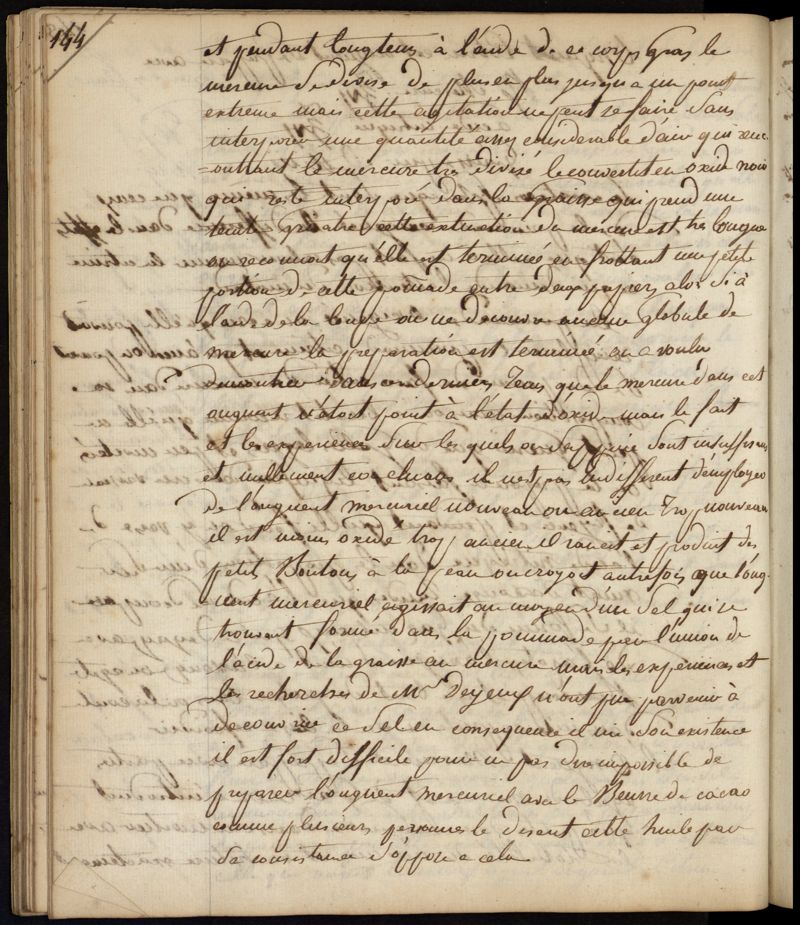 144
et pendant longtems à l'aide de ce corps gras le
mercure se divise de plus en plus jusqu'a un point
extreme mais cette agitation ne peut se faire sans
interposer une quantité assez considerable d'air qui renc
=ontrant le mercure tres divisé le convertit en oxide noir
qui reste interposé dans la graisse qui prend une
teint cette extinction du mercure est tres longue
on reconnoit qu'elle est terminée en frottant une petite
portion de cette pomade entre deux papiers, alors si à
l'aide de la loupe on ne decouvre aucune globule de
mercure la preparation est terminée on a voulu
demontrer dans ces derniers tems que le mercure dans cet
onguent n'etoit point à l'état d'oxide mais le fait
et les experiences sur les quels on s'appuie sont insuffisans
et nullement il n'est pas indifferent d'employer
de l'onguent mercuriel nouveau ou ancien trop nouveau
il est moins oxide trop ancien il rancit et produit des
petits Boutons à la peau on croyoit autrefois que l'ong-
uent mercuriel agissait au moyen d'un sel qui se
trouvait formé dans la pommade par l'union de
l'acide de la graisse au mercure mais les experiences et
les recherches de Mr Deyeux n'ont pu parvenir à
decouvrir ce sel en consequence il nie son existence
il est fort difficile pour ne pas dire impossible de
preparer l'onguent mercuriel avec le Beurre de cacao
comme plusieurs personnes le disent cette huile par
sa consistance s'oppose a cela